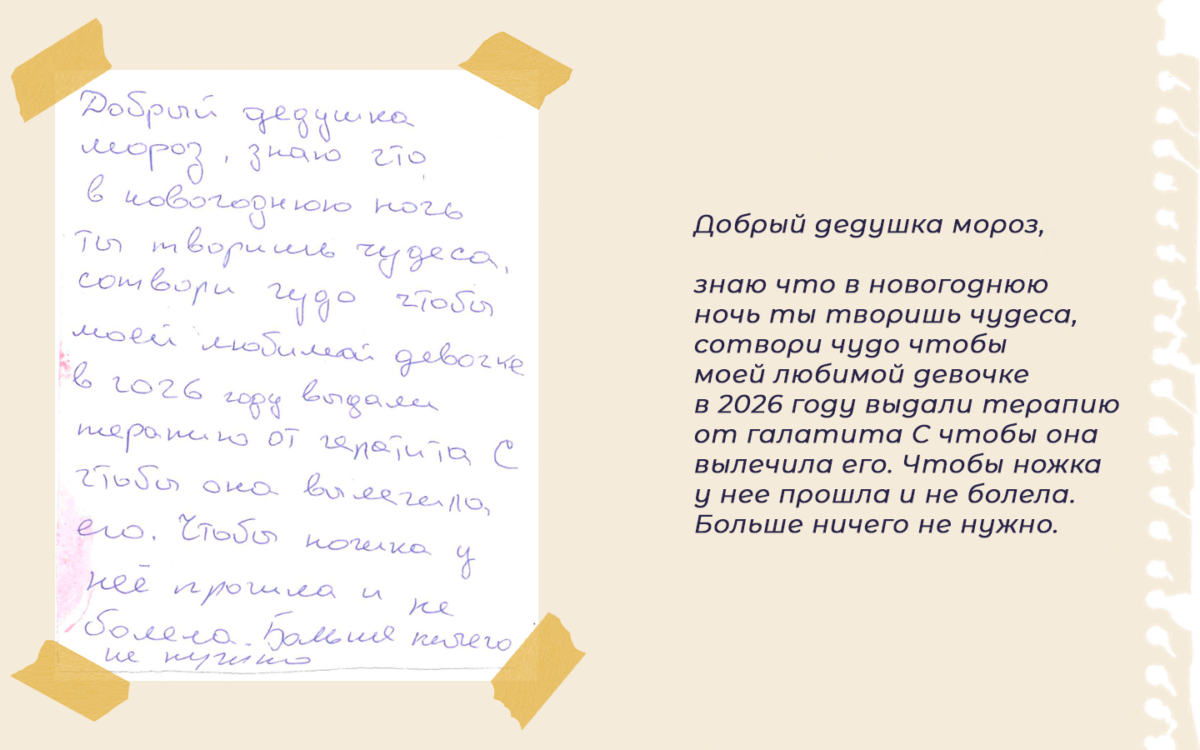 Добрый дедушка
мороз, знаю что
в новогоднюю ночь
ты творишь чудеса,
сотвори чудо чтобы
моей любимой девочке
в 2026 году выдали
терапию от гепатита С
чтобы она вылечила
его. Чтобы ножка у
неё прошла и не
болела. Больше ничего
не нужно
Добрый дедушка мороз,
знаю что в новогоднюю
ночь ты творишь чудеса,
сотвори чудо чтобы
моей любимой девочке
в 2026 году выдали терапию
от галатита С чтобы она
вылечила его. Чтобы ножка
у нее прошла и не болела.
Больше ничего не нужно.